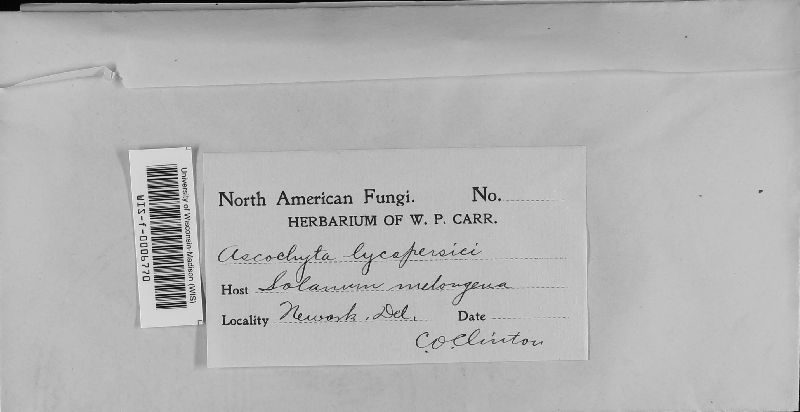 North American Fungi. No.
HERBARIUM OF W. P. CARR.
Ascochyta lycopersici
Host Solanum melongena
Locality Newark, Del. Date
C.O. Clinton
University of Wisconsin-Madison (WIS)
WIS-f-0006770